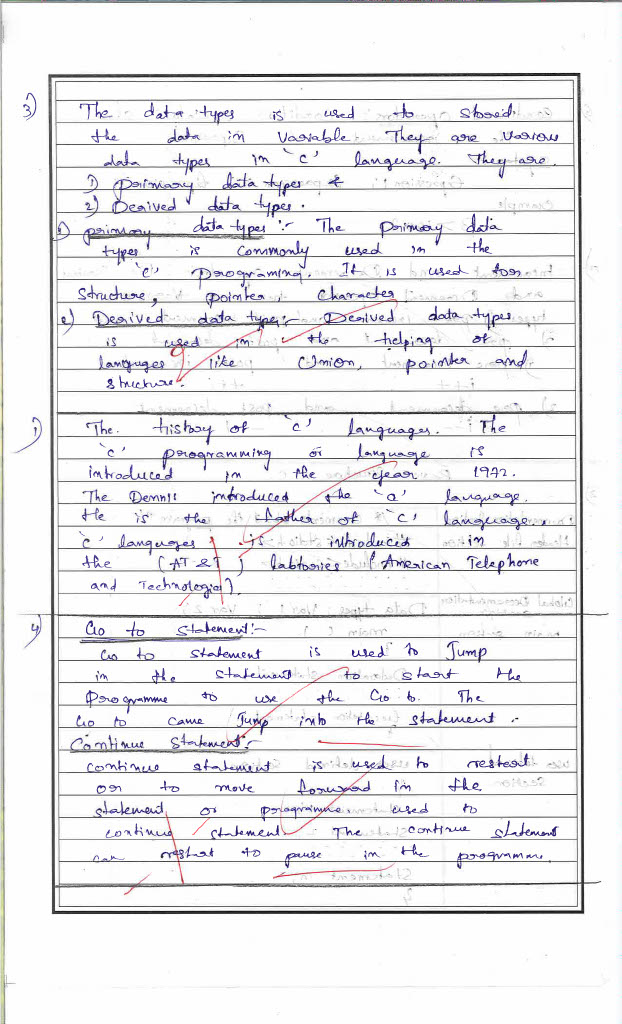 3) The data types is used to stored.
the data in Variable They are various
data types in 'c' language. They are.
1) primary data types &
2) Derived data types.
1) primary data types :- The Primary data
types is commonly used in the
'c' programing. It is used for
Structure, pointer, Character
2) Derived data type:- Derived data types
is used in the helping of
languages like Union, pointer and
structure.
1) The. history of 'c' languages. The
'c' programming or language is
introduced in the year 1972.
The Dennis introduced the 'a' language.
He is the father of 'c' language.
'c' languages is introduced in
the (AT &T) labtories (American Telephone
and Technologie).
4) Go to statement:-
Go to statement is used to Jump
in the statement to start the
Programme to use the Go to. The
Go to came Jump into the statement.
Continue Statement:-
continue statement is used to restart
or to move forward in the
statement or programme used to
continue statement. The continue statement
can restart to pause in the programme.